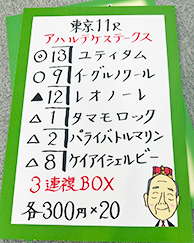 東京11R
アハルテケステークス
◎ 13 ユティタム
○ 9 イーグルノワール
▲ 12 レオノーレ
△ 1 タマモロック
△ 2 パライバトルマリン
△ 8 ケイアイシェルビー
3連複BOX
各300円×20